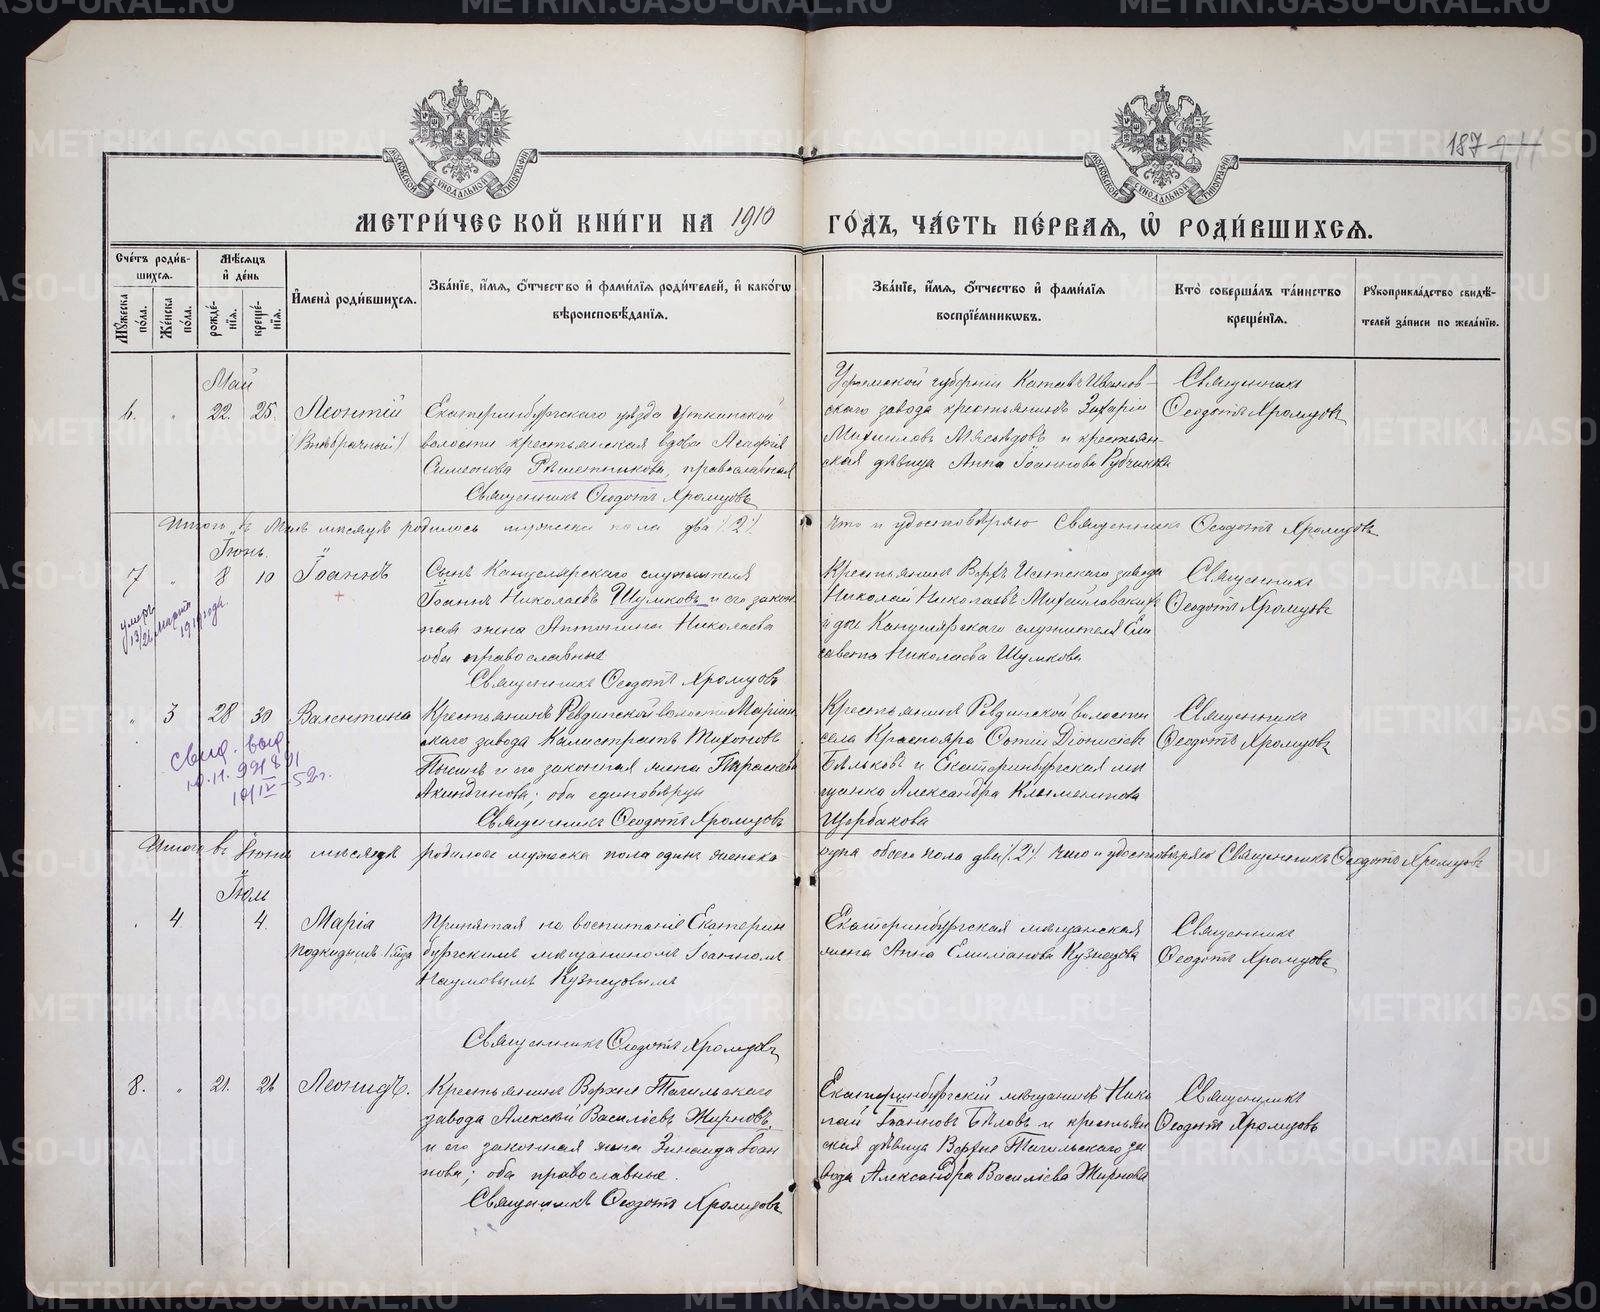 187
МОСКОВСКОЙ СѴНОДАЛЬНОЙ ТИПОГРАФІИ
МОСКОВСКОЙ СѴНОДАЛЬНОЙ ТИПОГРАФІИ
МЕТРИЧЕСКОЙ КНИГИ НА 1910 ГОДЪ, ЧАСТЬ ПЕРВАЯ, Ѡ РОДИВШИХСЯ.
Счетъ родившихся.
Мужеска пола.
Женска пола.
Мѣсяцъ и день
рожденія.
крещенія.
Имена родившихся.
Званіе, имя, отчество и фамилія родителей, и какогѡ
вѣроисповѣданія.
Званіе, имя, отчество и фамилія
воспріемникѡвъ.
Кто совершалъ таинство
крещенія.
Рукоприкладство свидѣ-
телей записи по желанію.
Май
6. " 22. 25. Леонтій
(Внѣбрачный)
Екатеринбургскаго уѣзда Уткинской
волости крестьянская вдова Агафія
Симеонова Рѣшетникова, православная
Священникъ Ѳеодотъ Хромцовъ
Уфимской губерніи Катавъ Иванов-
скаго завода крестьянинъ Захарій
Михаиловъ и крестьян-
ская дѣвица Анна Іоаннова
Священникъ
Ѳеодотъ Хромцовъ
Итого въ Маѣ мѣсяцѣ родилось мужеска пола два /2/.
Что и удостовѣряю Священникъ Ѳеодотъ Хромцовъ
Іюнь.
7 " 8 10 Іоаннъ
умеръ
13/26 марта
1919 года.
Сынъ Канцелярскаго служителя
Іоаннъ Николаевъ Шумковъ и его закон-
ная жена Антонина Николаева
оба православные
Священникъ Ѳеодотъ Хромцовъ
Крестьянинъ Верхъ Исетскаго завода
Николай Николаевъ Михайловскихъ
и дочь Канцелярскаго служителя Ели
савета Николаева Шумкова
Священникъ
Ѳеодотъ Хромцовъ
" 3 28 30 Валентина
свид. выд.
10/IV-52г.
Крестьянинъ Ревдинской волости Маріин
скаго завода Калистратъ Тихоновъ
и его законная жена Параскева
Акиндинова; оба единовѣрцы
Священникъ Ѳеодотъ Хромцовъ
Крестьянинъ Ревдинской волости
села Краснояра Діонисіевъ
Бѣльковъ и Екатеринбургская мѣ
щанка Александра Климентова
Щербакова
Священникъ
Ѳеодотъ Хромцовъ
Итого въ Іюнѣ мѣсяцѣ родилось мужеска пола одинъ женска
одна обоего пола два /2/. Что и удостовѣряю Священникъ Ѳеодотъ Хромцовъ
Іюль
. 4 4. Марія
подкидышъ 1 года
Принятая на воспитаніе Екатерин
бургскимъ мѣщаниномъ Іоанномъ
Наумовымъ Кузнецовымъ
Священникъ Ѳеодотъ Хромцовъ
Екатеринбургская мѣщанская
жена Анна Емиліанова Кузнецова
Священникъ
Ѳеодотъ Хромцовъ
8. " 21. 26 Леонидъ.
Крестьянинъ Верхне Тагильскаго
завода Алексѣй Васильевъ Жирновъ,
и его законная жена Зинаида Іоан
нова; оба православные.
Священникъ Ѳеодотъ Хромцовъ
Екатеринбургскій мѣщанинъ Нико
лай Іоанновъ Бѣловъ и крестьян
ская дѣвица Верхне Тагильскаго за
вода Александра Василіева Жирнова
Священникъ
Ѳеодотъ Хромцовъ
METRIKI.GASO-URAL.RU